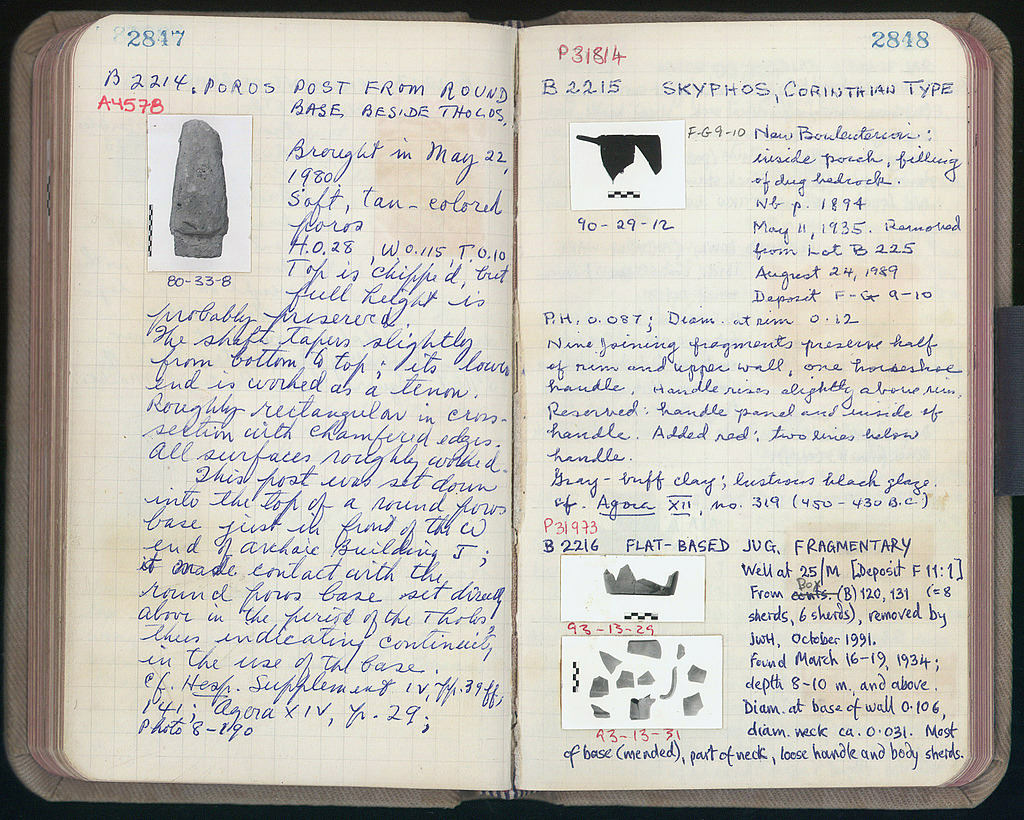 2847
B 2214. POROS POST FROM ROUND
A4578
BASE BESIDE THOLOS.
Brought in May 22,
1980
Soft, tan-colored
poros
H. 0.28, W 0.115, T. 0.10
Top is chipped, but
full height is
80-33-8
probably preserved
The shaft tapers slightly
from bottom to top; its lower
end is worked as a tenon.
Roughly rectangular in cross-
section with chamfered edges.
All surfaces roughly worked.
This post was set down
into the top of a round poros
base just in front of the W
end of archaic Building J;
it made contact with the
round poros base set directly
above in the period of the Tholos
thus indicating continuity
in the use of the base.
cf. Hesp. Supplement IV, pp. 39 ff,
141; Agora XIV, p. 29;
Photo 8-290
2848
P31814
B 2215 SKYPHOS, CORINTHIAN TYPE
F-G 9-10
New Bouleuterion:
inside porch, filling
of dug bedrock.
Nb p. 1894
90-29-12
May 11, 1935. Removed
from Lot B 225
August 24, 1989
Deposit F-G 9-10
P.H. 0.087; Diam. at rim 0.12
Nine joining fragments preserve half
of rim and upper wall, one horseshoe
handle. Handle rises slightly above rim.
Reserved: handle panel and inside of
handle. Added red: two lines below
handle.
Gray-buff clay; lustrous black glaze.
cf. Agora XII, no. 319 (450-430 B.C.)
P31973
B 2216 FLAT-BASED JUG. FRAGMENTARY
Well at 25/M [Deposit F 11:1]
Box
From conts. (B) 120, 131 (=8
sherds, 6 sherds), removed by
JWH, October 1991.
93-13-29
Found March 16-19, 1934;
depth 8-10 m. and above.
Diam. at base of wall 0.106,
diam. neck ca. 0.031. Most
93-13-31
of base (mended), part of neck, loose handle and body sherds.